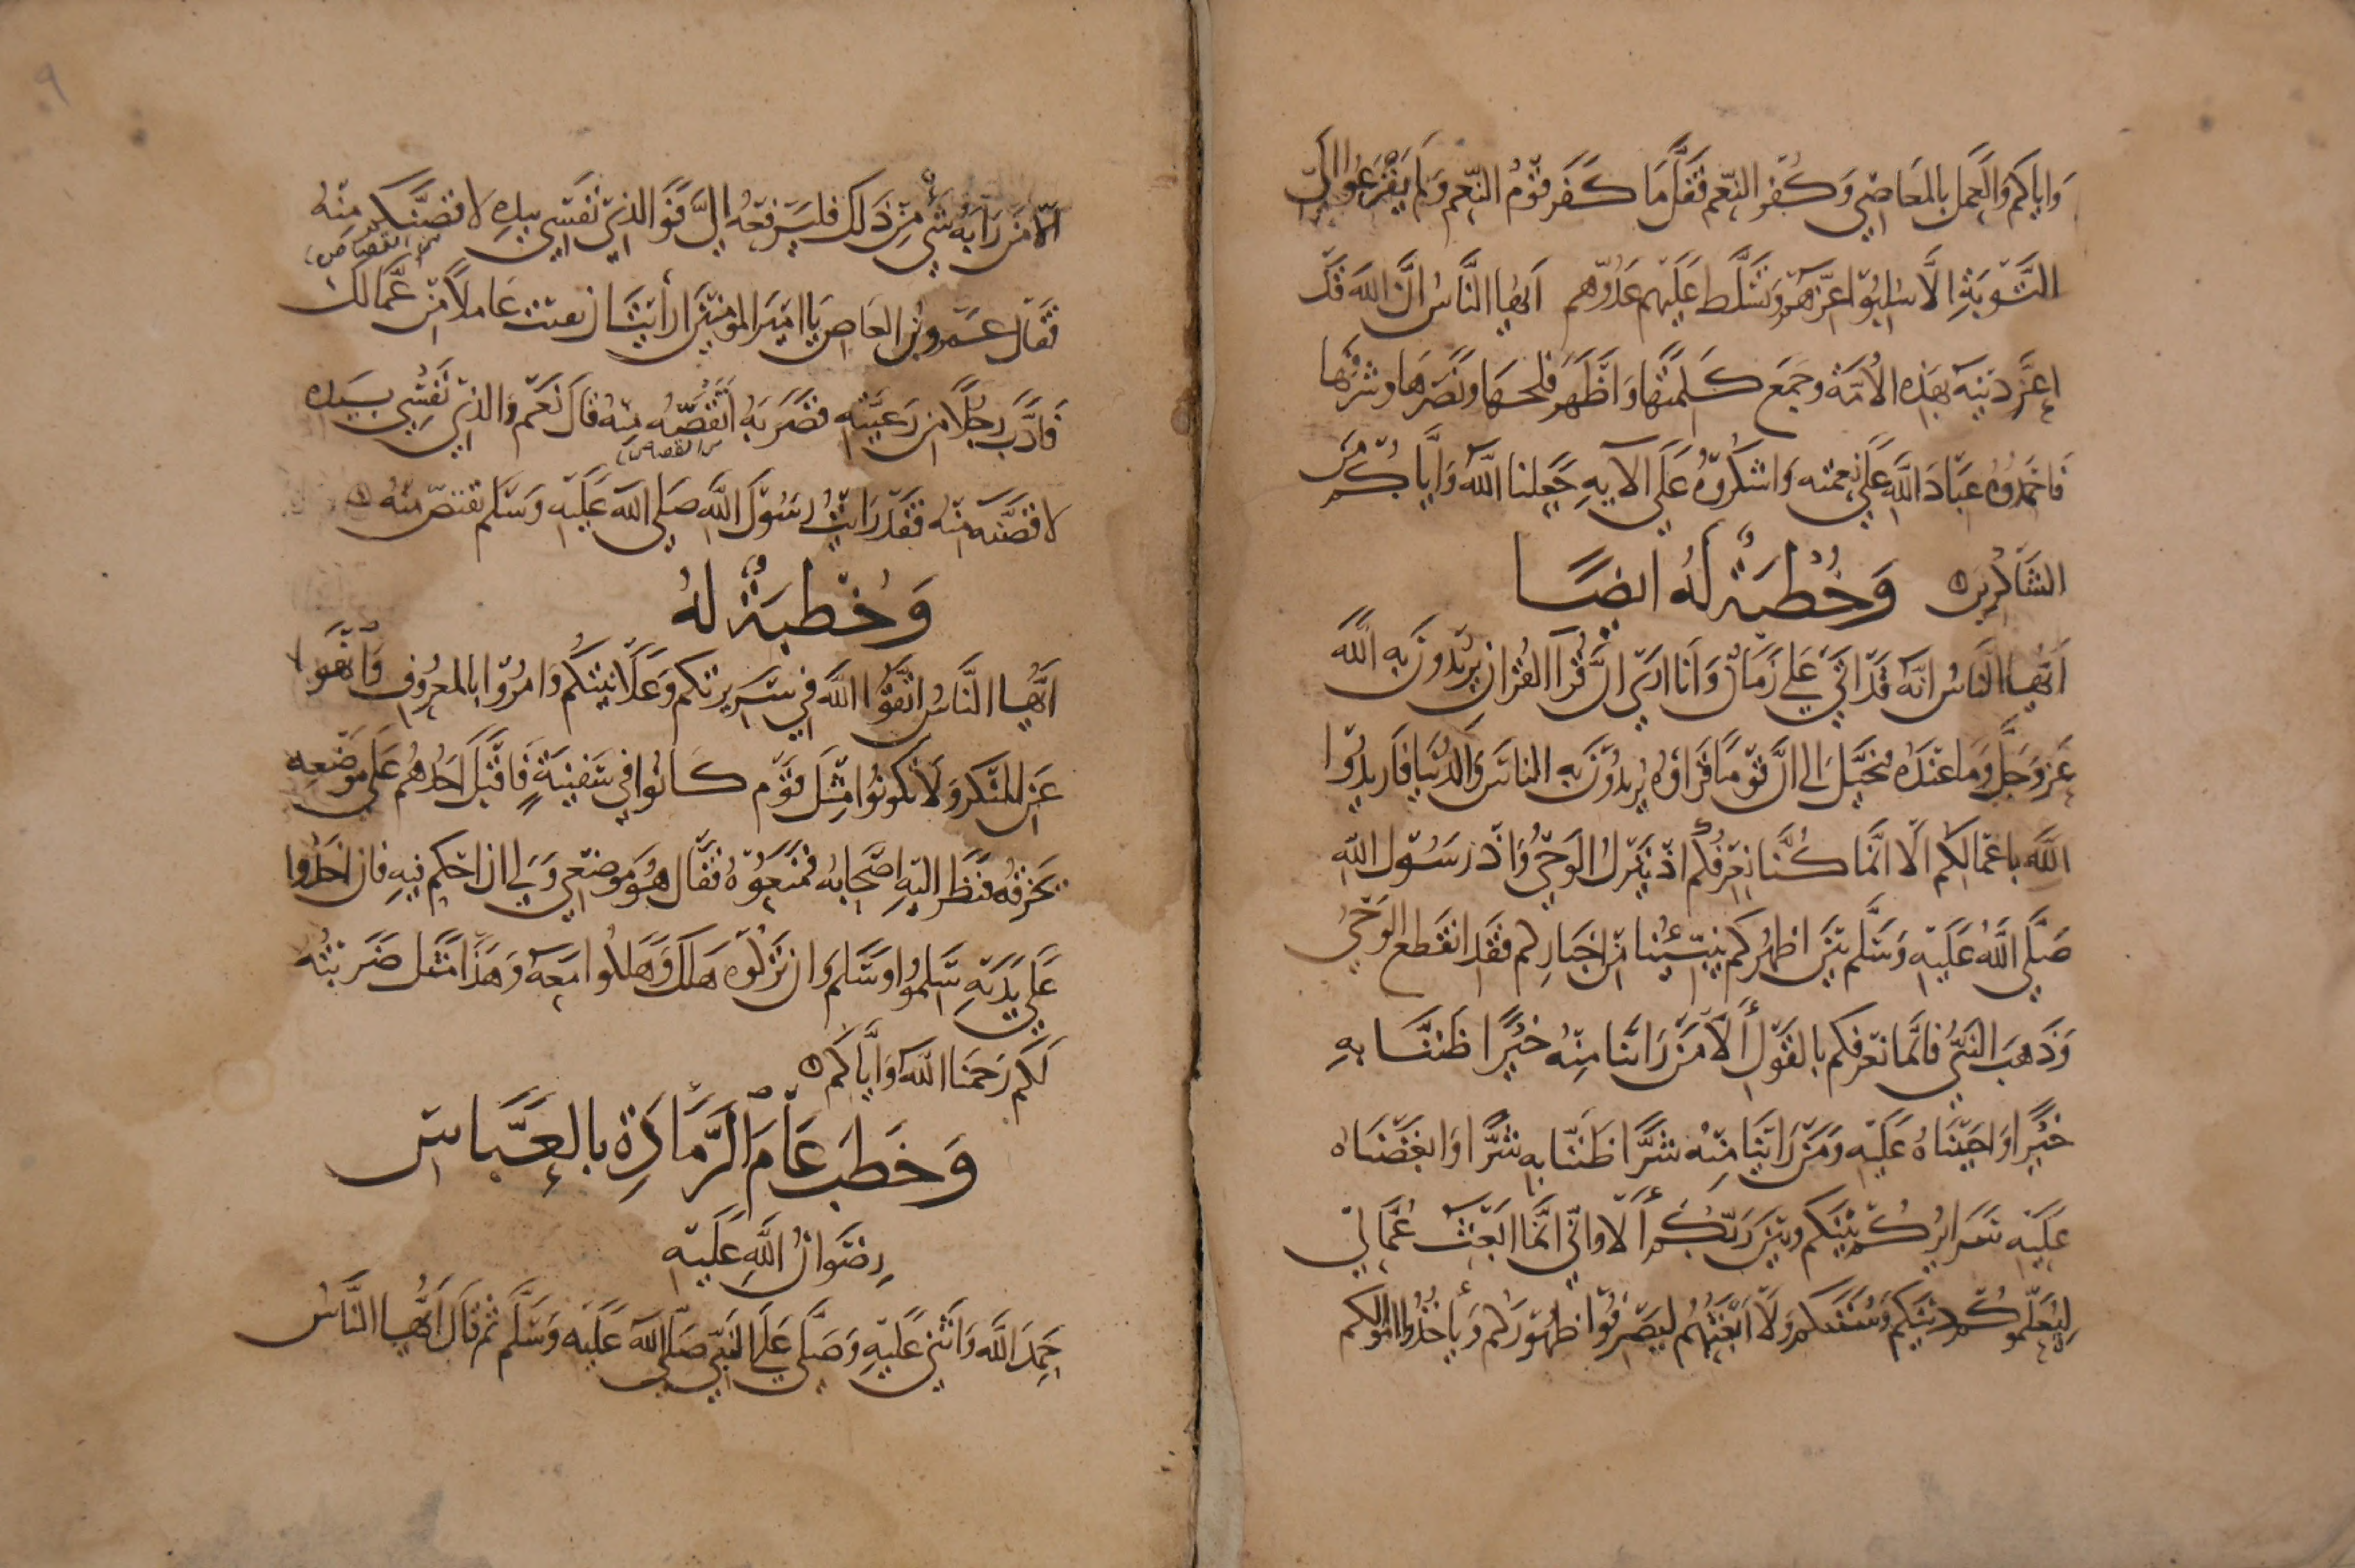 وَاياكم والعَمل بالمعَاصِي وَكُفر النِّعَم فَقَلَّ مَا كَفَر قَوْمُ النِّعَم وَلَم يَفْزَعُوا الَى
التَّوبَةِ الَّا سُلِبُوا عِزّهُم وَتَسَلَّط عَلَيهم عَدُوّهم ايّها النَّاسُ انَّ اللهَ قَد
اعَزَّ دِينَهُ بهَذِهِ الأُمّة وجمَع كَلِمَتَها وَاظْهَر فلحهَا ونَصَرهَا وشَرَّفها
فَاحْمَدُوهُ عبَادَ اللَّهِ عَلَى نِعمَتِه وَاشكُروهُ عَلَى آلايِهِ جَعلنا اللَّه وَايَّاكُم مِنَ
الشَاكرِين وَخُطبَةٌ لَهُ ايضًا
ايّها النَّاسُ انّه قَد اتَى عَلَى زَمَانٌ وَانا ارَى انَّ قُرّا القُرآن يُرِيدُونَ بِهِ اللَّه
عَزّ وَجَلّ وَمَا عنْدَهُ فخيّلَ الي انَّ قَومًا قَرَاوهُ يُريدُونَ بهِ الناسَ وَالدُّنيا فاريدُوا
اللَّه باعْمَالِكُم الّا انّمَا كُنَّا نعَرفُكُم اذ يَنزِل الوَحيُ وَاذ رَسُول اللهِ
صَلَّى اللَّهُ عَلَيهِ وَسَلَّم بَينَ اظهُركم يُنَبِّئُنا مِن اخبَارِكم فقَد انقَطع الوَحيُ
وَذَهبَ النَّبيُّ فانَّما نعَرفكم بالقَول أَلَا مَن رَاينَا مِنْه خَيرًا ظَنَنَّا بهِ
خَيرًا وَاحبَبنَاهُ عَلَيهِ وَمَن رَاينَا مِنْه شَرًّا ظَنَنّا بهِ شَرًّا وَابغَضنَاه
عَلَيهِ سَرَايرُكُم بَينكم وبَينَ رَبّكُم أَلَا وانّي انّمَا ابعَثُ عُمَّالي
لِيُعَلّموكُم دِينكم وَسُنَنكم وَلَا ابعَثهُم لِيَضرِبُوا ظهُورَكم وَيَأخُذُوا اموَالكم
الَا مَن رَابَهُ شَيْءٌ مِن ذَلِكَ فليَرفعهُ الَيَّ فوَالذي نفسِي بيَدِهِ لاقصَّنَّكم مِنْه
من القصاص
فَقَال عَمْرو بنُ العَاص يَا امِيرَ المؤمنينَ أرأيتَ ان بعَثت عَاملاً مِن عُمَّالك
فَادَّبَ رَجُلًا مِن رَعيَّتِهِ فضَرَبَهُ اتَقُصّه مِنه قال نَعَم وَالذي نَفْسِي بيَدِه
من القصاص
لاقصَّنَّه مِنْه فقَد رَايتُ رسُولَ اللَّهِ صَلى الله عَلَيهِ وَسَلَّم يقتصّ مِنْه
وَخُطبَةٌ لهُ
ايُّهَا النَّاسُ اتَّقُوا اللَّه في سَرِيرتكم وَعَلَانِيَتِكُم وَامُرُوا بالمعرُوفِ وَانْهَوا
عَنِ المنكَر وَلَا تَكونُوا مِثلَ قَوم كَانُوا في سَفينَةٍ فَاقبَل احَدُهُم عَلَى مَوضعِه
يخرقهُ فنَظَر اليهِ اصْحَابه فمنَعُوهُ فقَال هُوَ مَوضعِي وَلِي ان احْكم فيهِ فان اخَذوا
عَلَى يَدَيهِ سَلِمُوا وسَلم وَان تَرَكوه هَلَك وَهَلَكوا معَهُ وَهَذا مَثَل ضَرَبتُه
لَكم رَحَمنا اللَّه وَايَّاكم
وَخَطَبَ عَامَ الرَّمَادَةِ بالعَبَّاسِ
رِضوَانُ اللَّهِ عَلَيهِ
حَمِدَ اللَّه وَاثنَى عَلَيهِ وَصَلَّى عَلَى النَّبيّ صَلّى اللهُ عَلَيه وَسَلَّم ثم قَال ايُّهَا النَّاسُ
٩